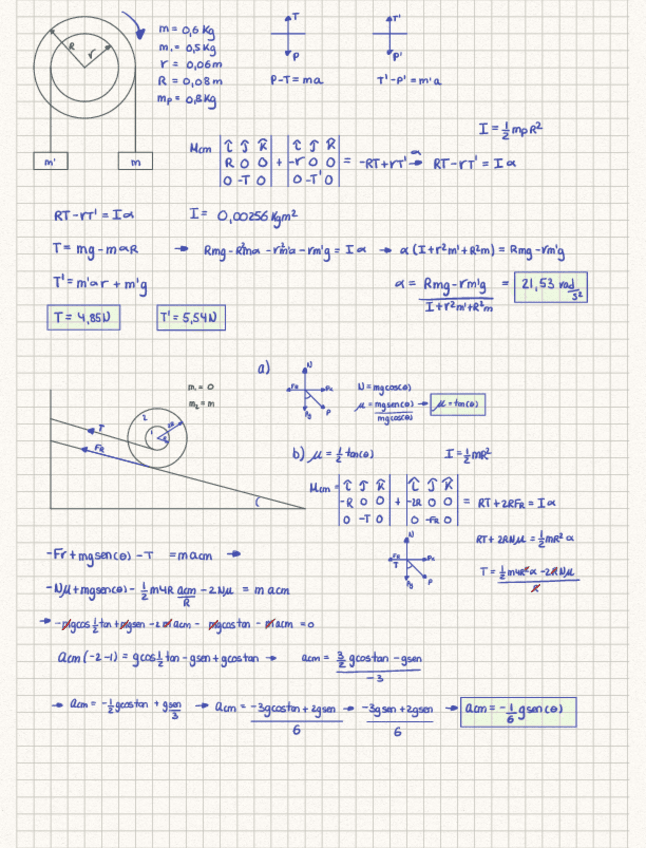 R
r
m = 0,6 Kg
m, = 0,5 Kg
r = 0,06m
R = 0,08m
mp = 0,8 Kg
m'
m
T
P
P-T = ma
T'
P'
T'-P' = m'a
I = 1/2 mpR²
Mcm | î ĵ k̂ ; R 0 0 ; 0 -T 0 | + | î ĵ k̂ ; -r 0 0 ; 0 -T' 0 | = -RT+rT' → RT-rT' = Iα
RT-rT' = Iα
I = 0,00256 Kgm²
T = mg-mαR → Rmg-R²mα-r²m'α-rm'g = Iα → α(I+r²m'+R²m) = Rmg-rm'g
T' = m'αr + m'g
α = Rmg-rm'g / I+r²m'+R²m = 21,53 rad/s²
T = 4,85N
T' = 5,54N
a)
m, = 0
m₂ = m
N = mgcos(θ)
μ = mgsen(θ) / mgcos(θ) → μ = tan(θ)
b) μ = 1/2 tan(θ)
I = 1/2 mR²
2
1
T
FR
Mcm = | î ĵ k̂ ; -R 0 0 ; 0 -T 0 | + | î ĵ k̂ ; -2R 0 0 ; 0 -FR 0 | = RT+2RFR = Iα
RT + 2RNμ = 1/2 mR² α
T = 1/2 m4R²α - 2RNμ / R
-Fr+mgsen(θ) - T = m acm →
-Nμ+mgsen(θ) - 1/2 m4R acm/R - 2Nμ = m acm
→ -mgcos 1/2 tan + mgsen - 2 m acm - mgcostan - m acm = 0
acm (-2-1) = gcos 1/2 tan - gsen + gcostan → acm = 3/2 gcostan - gsen / -3
→ acm = -1/2 gcostan + gsen/3 → acm = -3gcostan + 2gsen / 6 → -3gsen + 2gsen / 6 → acm = -1/6 gsen(θ)